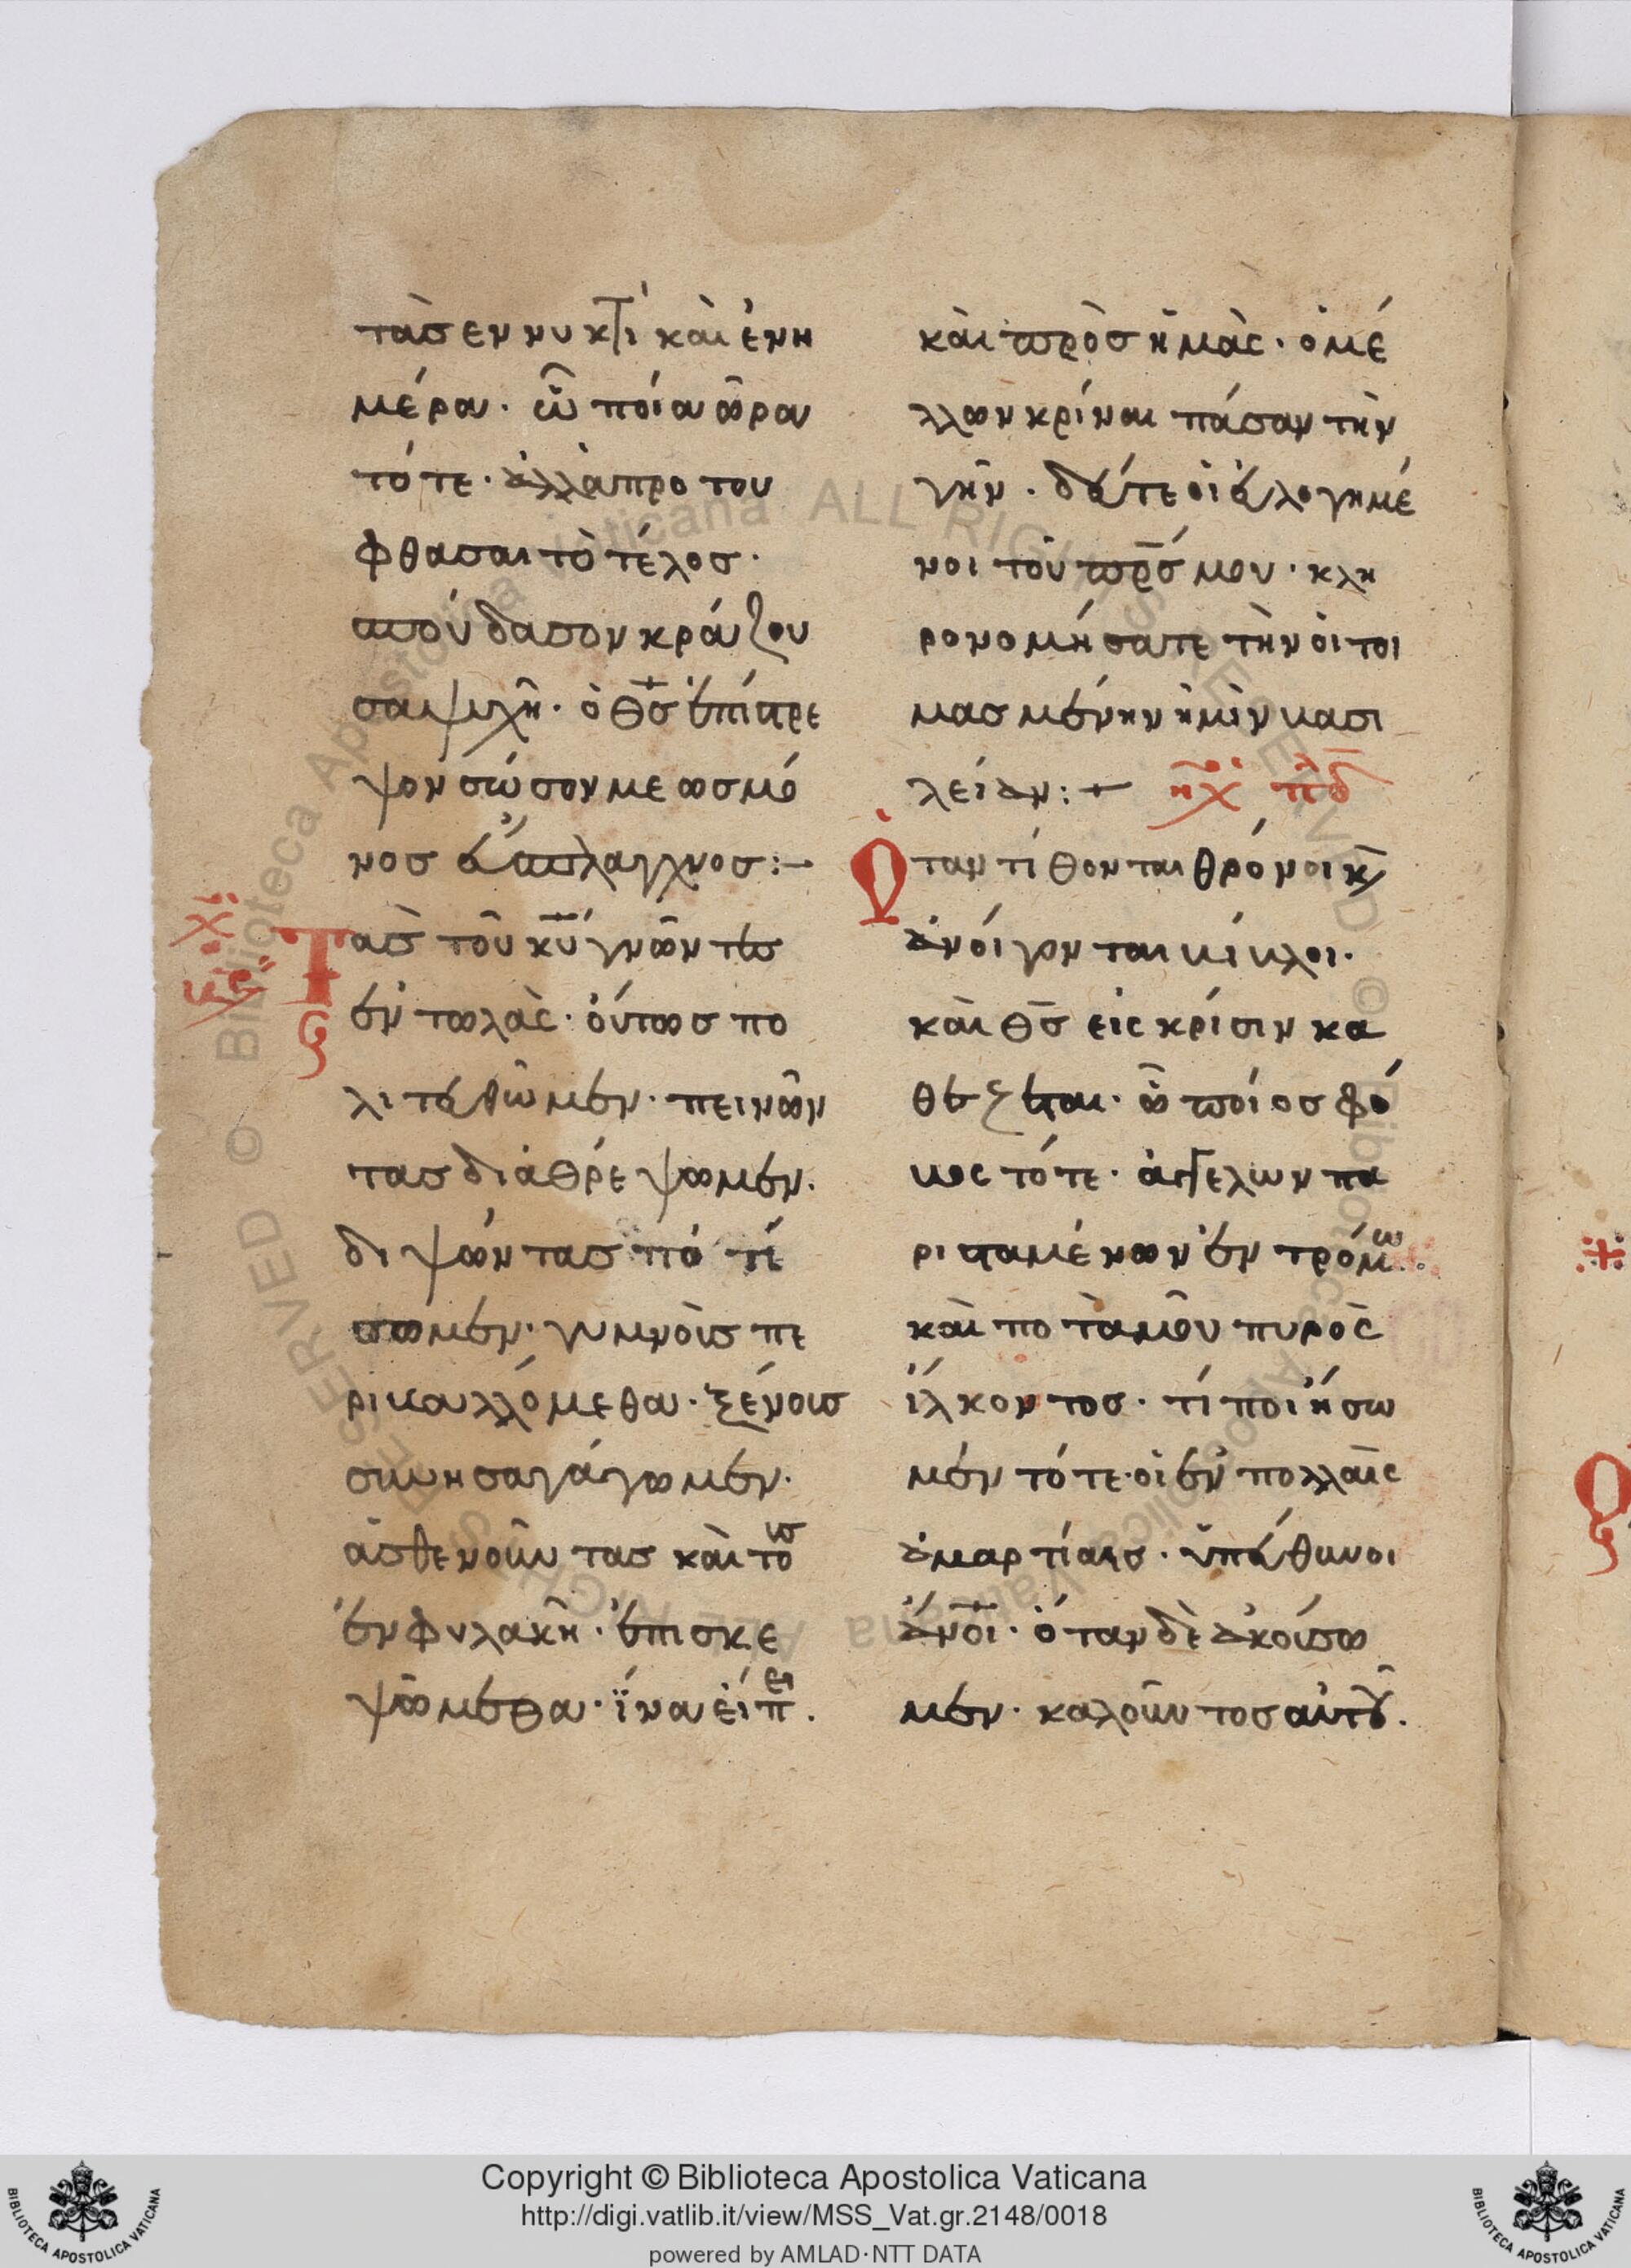 τὰσ εν νυκτὶ καὶ ἐνη
μέρα· ὢ ποία ὥρα
τότε· ἀλλὰ προ του
φθασαι τὸ τέλοσ·
σπούδασον κράζου
σαι ψυχῆ· ὁ θσ ἐπίστρε
ψον σώσον με ωσ μό
νοσ εύσπλαγχνοσ:
Τὰσ τοῦ κυ γνῶντεσ
ἐντωλὰς· οὕτωσ πο
λιτευθῶμεν· πεινῶν
τασ διαθρέψωμεν·
διψῶντασ ποτί
σωμεν· γυμνοὺσ πε
ρικαλλόμεθα· ξένουσ
συνησαγάγωμεν·
ἀσθενοῦντασ καὶ τοισ
ἐν φυλακῆ· ἐπισκε
ψῶμεσθα· ἵνα εἴπει·
καὶ πρὸσ ἡμὰς· ὁ μέ
λλων κρίναι πάσαν τὴν
γῆν· δεύτε οἱ εὐλογημέ
νοι τοῦ πρσ μου· κλη
ρονομήσατε τὴν ἑτοι
μασμένην ἡμὶν βασι
λείαν: ηχ πδ
Ὅταν τίθονται θρόνοι κ
ἀνοίγονται βίβλοι·
καὶ θσ εἰς κρίσιν κα
θέζεται· ὢ ποίοσ φό
βος τότε· ἀγγελων πα
ρισταμένων ἐν τρόμω·
καὶ ποταμοῦ πυρὸς
ἕλκοντοσ· τί ποιήσω
μεν τότε· οἱ ἐν πολλαῖς
ἁμαρτίαισ· ὑπεύθυνοι
ἄνοι· ὅταν δὲ ἀκούσω
μεν· καλοῦντοσ αὐτοῦ·
Copyright © Biblioteca Apostolica Vaticana
http://digi.vatlib.it/view/MSS_Vat.gr.2148/0018
powered by AMLAD·NTT DATA
BIBLIOTECA APOSTOLICA VATICANA
BIBLIOTECA APOSTOLICA VATICANA
Biblioteca Apostolica Vaticana ALL RIGHTS RESERVED ©